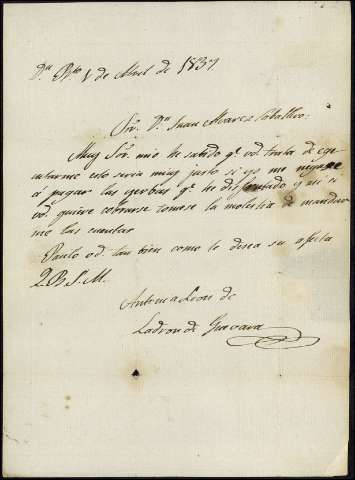 1 de Abril de 1837
Sor. Dn. Juan Alvarez Caballero:
Muy Sor. mio he sabido qe. vd. trata de ege
cutarme esto seria muy justo si yo me negase
á pagar las yerbas qe. he disfrutado y asi si
vd. quiere cobrarse tomese la molestia de mandar
me las cuentas
Paselo vd. tan bien como le desea su afecta
Q. B. S. M.
Antonia Leon de
Ladron de Guevara